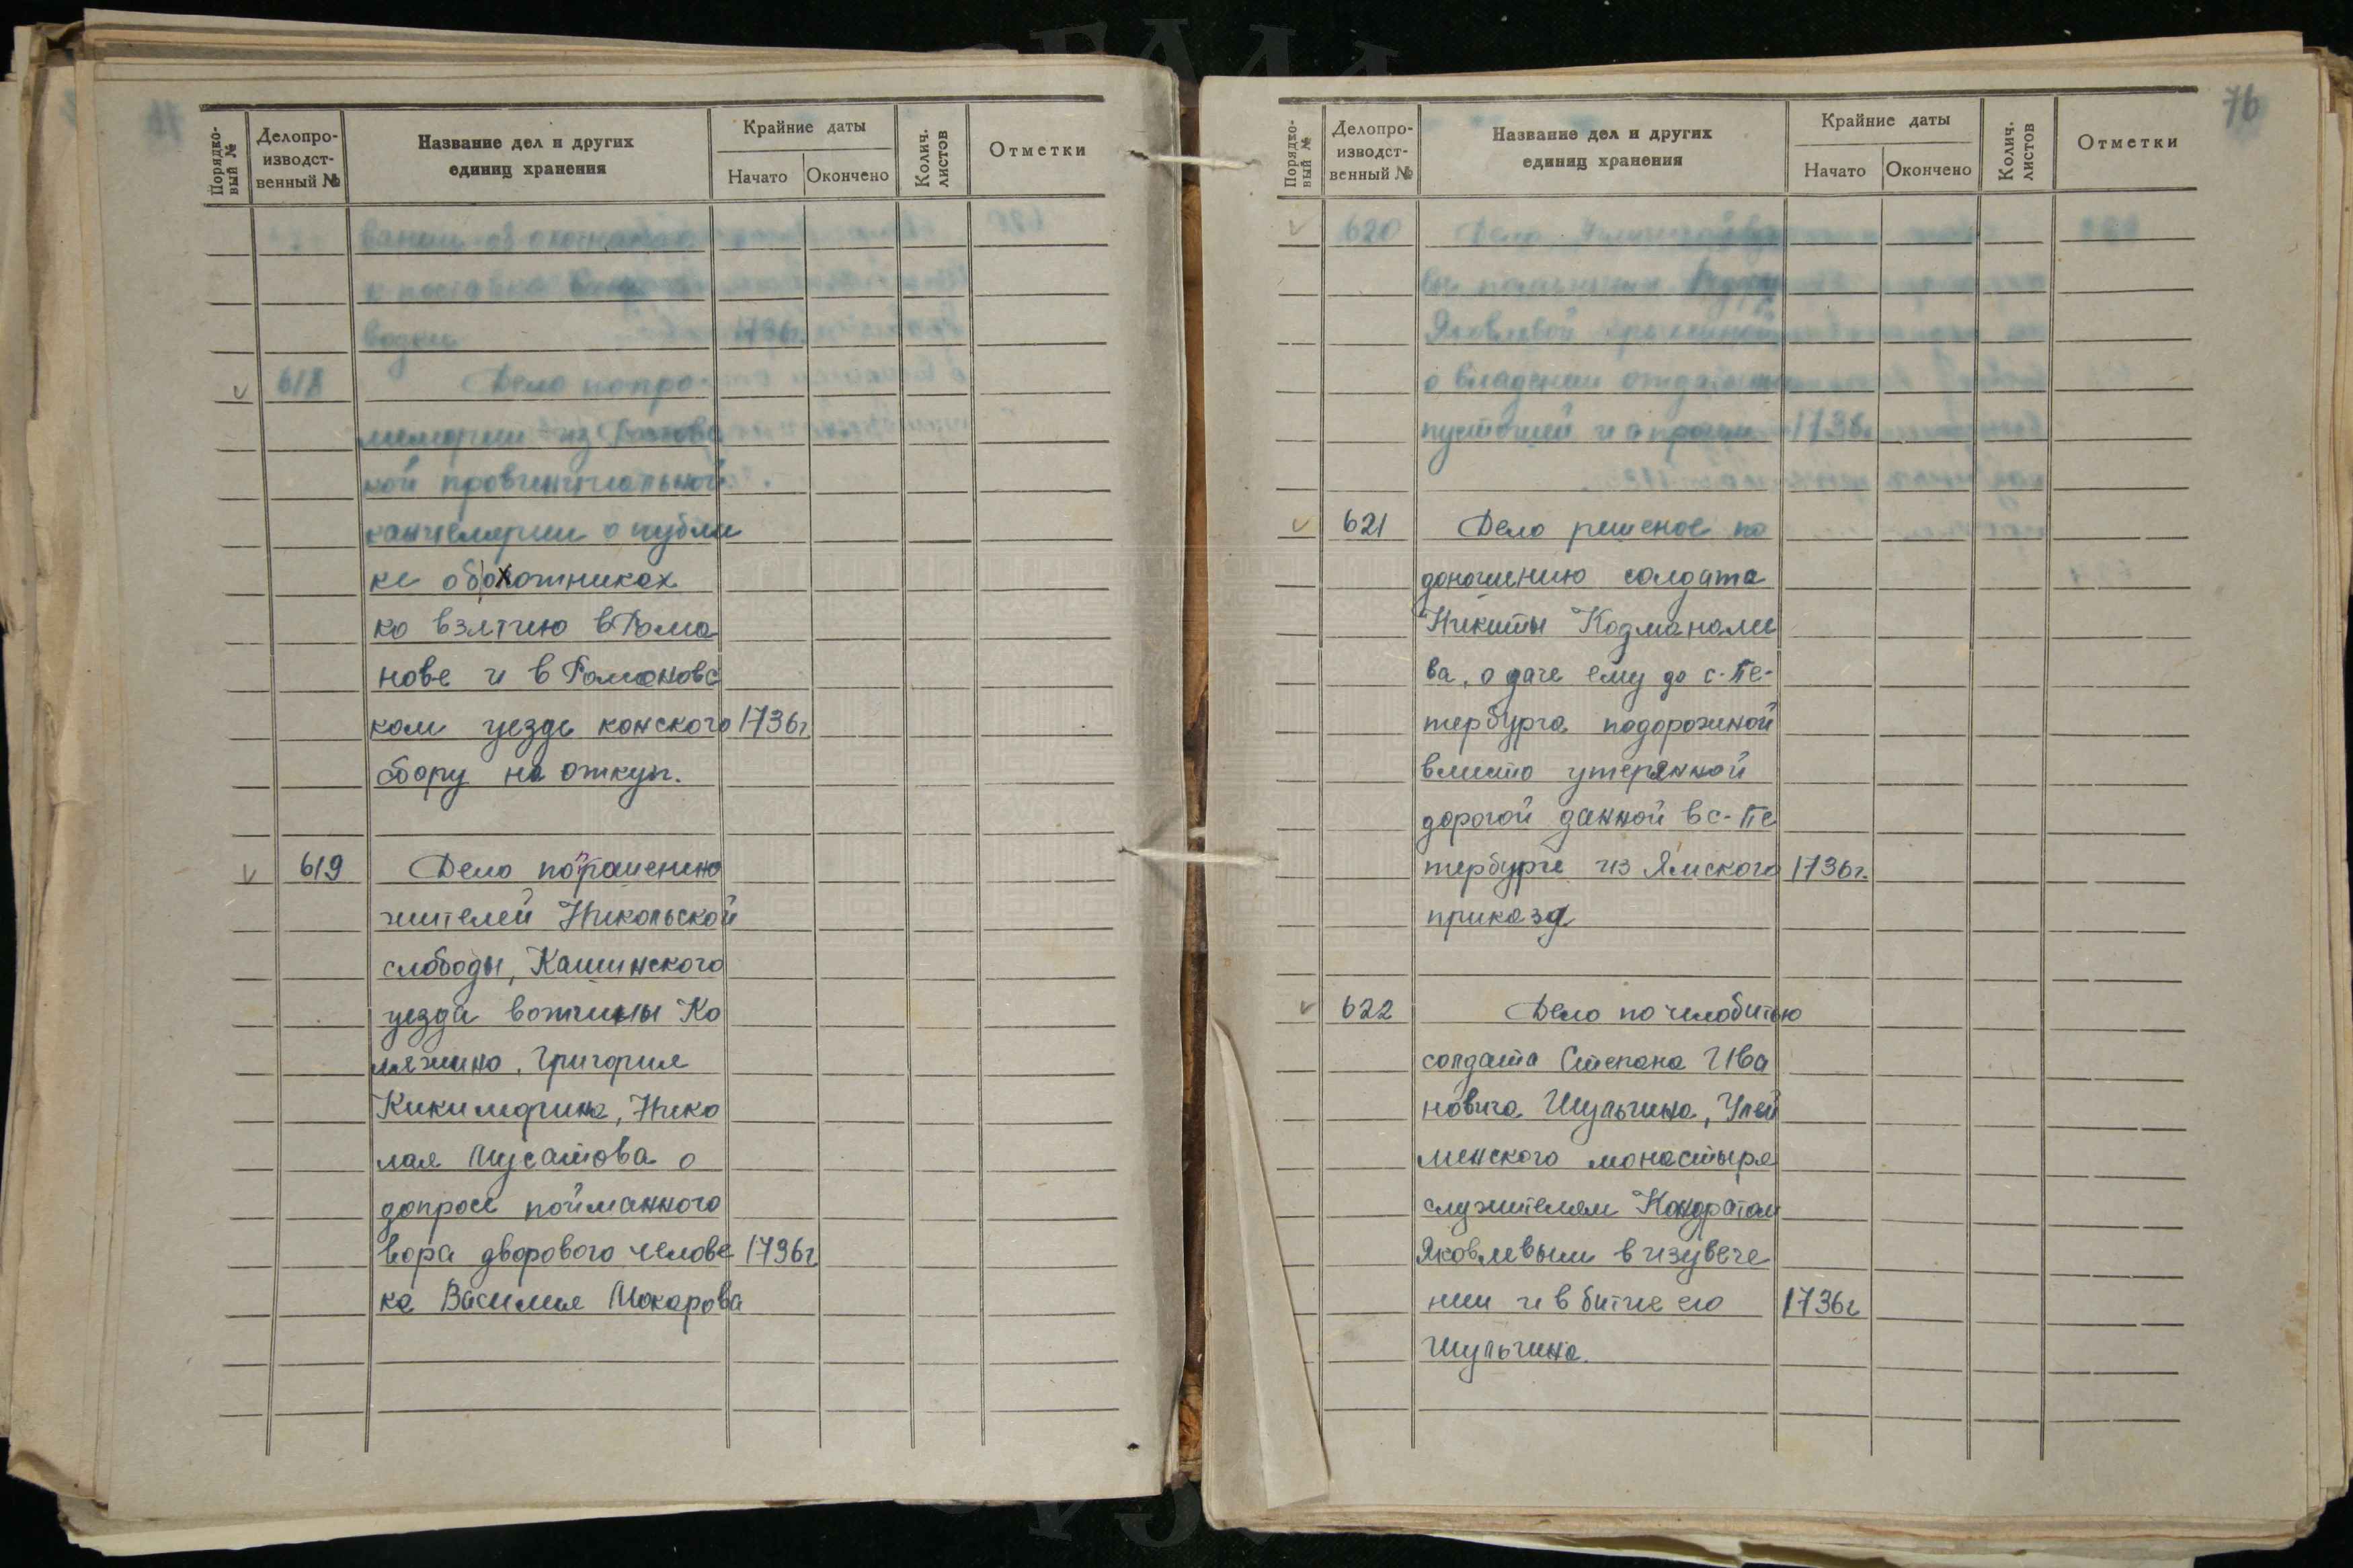 Порядко-
вый №
Делопро-
изводст-
венный №
Название дел и других
единиц хранения
Крайние даты
Начато
Окончено
Колич.
листов
Отметки
вании об охотниках
к поставке
водки 1736г.
618 Дело по про
мемории из Романовс
кой провинциальной
канцелярии о публи
ке об охотниках
ко взятию в Рома
нове и в Романовс
ком уезде конского 1736г.
сбору на откуп.
619 Дело по прошению
жителей Никольской
слободы, Кашинского
уезда вотчины Ко
лязино, Григория
Кикиморина, Нико
лая Мусатова о
допросе пойманного
вора дворового челове 1736г.
ка Василия Макарова
76
Порядко-
вый №
Делопро-
изводст-
венный №
Название дел и других
единиц хранения
Крайние даты
Начато
Окончено
Колич.
листов
Отметки
620 Дело
вы помещика
Яковлевой
о владении
пустошей и о прочем 1736.
621 Дело решеное по
доношению солдата
Никиты Кадманали
ва, о даче ему до С-Пе-
тербурга подорожной
вместо утерянной
дорогой данной в С-Пе
тербурге из Ямского 1736г.
приказа
622 Дело по челобитью
солдата Степана Ива
новича Шульгина, Улей
менского монастыря
служителем Кондратом
Яковлевым в изувече
нии и в битье его 1736г.
Шульгина.